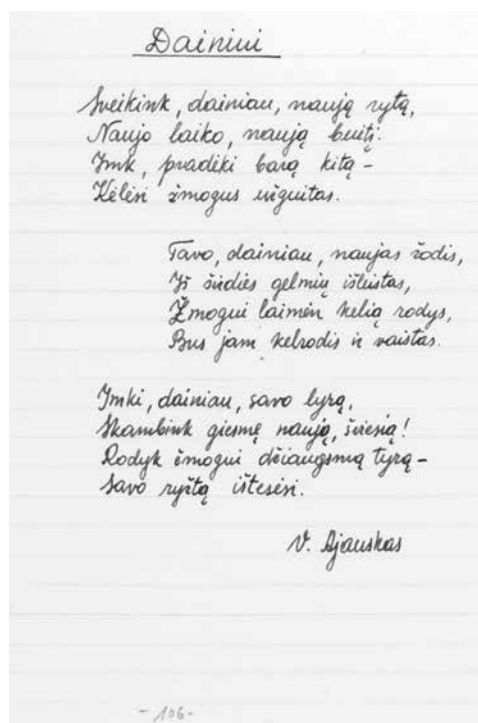 Dainiui
Sveikink, dainiau, naują rytą,
Naujo laiko, naują buitį.
Imk, pradėki barą kitą –
Kėlėsi žmogus užguitas.
Tavo, dainiau, naujas žodis,
Iš širdies gelmių išleistas,
Žmogui laimėn kelią rodys,
Bus jam kelrodis ir vaistas.
Imki, dainiau, savo lyrą,
Skambink giesmę naują, šviesią!
Rodyk žmogui džiaugsmą tyrą –
Savo ryžtą ištesėsi.
V. Ajauskas
- 106 -